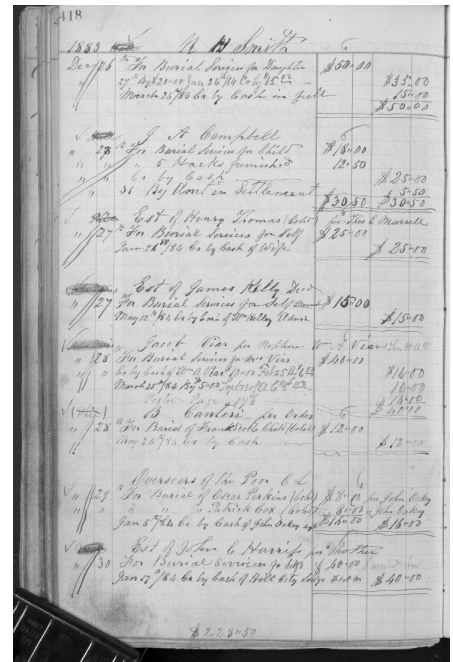 418
1883 N H Smith
Dec 26 th For Burial Services for Daughter $50.00
27th By $20.00 Jan 26th/84 Co by $15.00 $35.00
March 26th/84 Co by Cash in full 15.00
$50.00
J A Campbell
" 28 th For Burial Services for Child $18.00
" " 5 Hacks furnished 12.50
" " Co by Cash $25.00
" 31 By Amt in Settlement 5.50
$30.50 $30.50
Est of Henry Thomas (Cold) per Thos C Murrell
" 27 th For Burial Services for Self $25.00
Jan 28th/84 Co by Cash of Wife $25.00
Est of James Kelly Decd
" 27 For Burial Services for Self $15.00
May 12th/84 Co by Cash of Wm Kelley Admr $15.00
Jacob Viar per Nephew Wm A Viar
" 28 For Burial Services for Mrs Viar $40.00
Co by Cash of Wm A Viar 10.00 $16.00
March 25th/84 By 5.00 10.00
14.00
$40.00
B Canteri per Order
" 28 th For Burial of Child (Cold) $12.00
May 24th/84 Co by Cash $12.00
Overseers of the Poor C L
" 29 th For Burial of Perkins (Cold) $8.00 per John Oakey
" " " " " Patrick Cox (Cold) 8.00 " John Oakey
Jan 5th/84 Co by Cash of John Oakey $16.00 $16.00
Est of John C Harriss per Mother
" 30 For Burial Services for Self $40.00
Jan 17th/84 Co by Cash of Hill City Lodge $40.00
$228.50